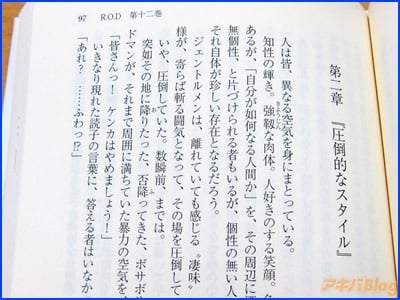 97 R.O.D 第十二巻
第二章 『圧倒的なスタイル』
人は皆、異なる空気を身にまとっている。
知性の輝き。強靱な肉体。人好きのする笑顔。
あるが、「自分が如何なる人間か」を、その周辺に
無個性、と片づけられる者もいるが、個性の無い人
それ自体が珍しい存在となるだろう。
ジェントルメンは、離れていても感じる〝凄味〟
様が、寄らば斬る闘気となって、その場を圧倒して
いや、圧倒していた。数瞬前、までは。
突如その地に降りたった、否降ってきた、ボサボサ
ドマンが、それまで周囲に満ちていた暴力の空気を
「皆さんっ! ケンカはやめましょう!」
いきなり現れた読子の言葉に、答える者はいなか
「あれ? ……ふわっ!?」
アキバBlog